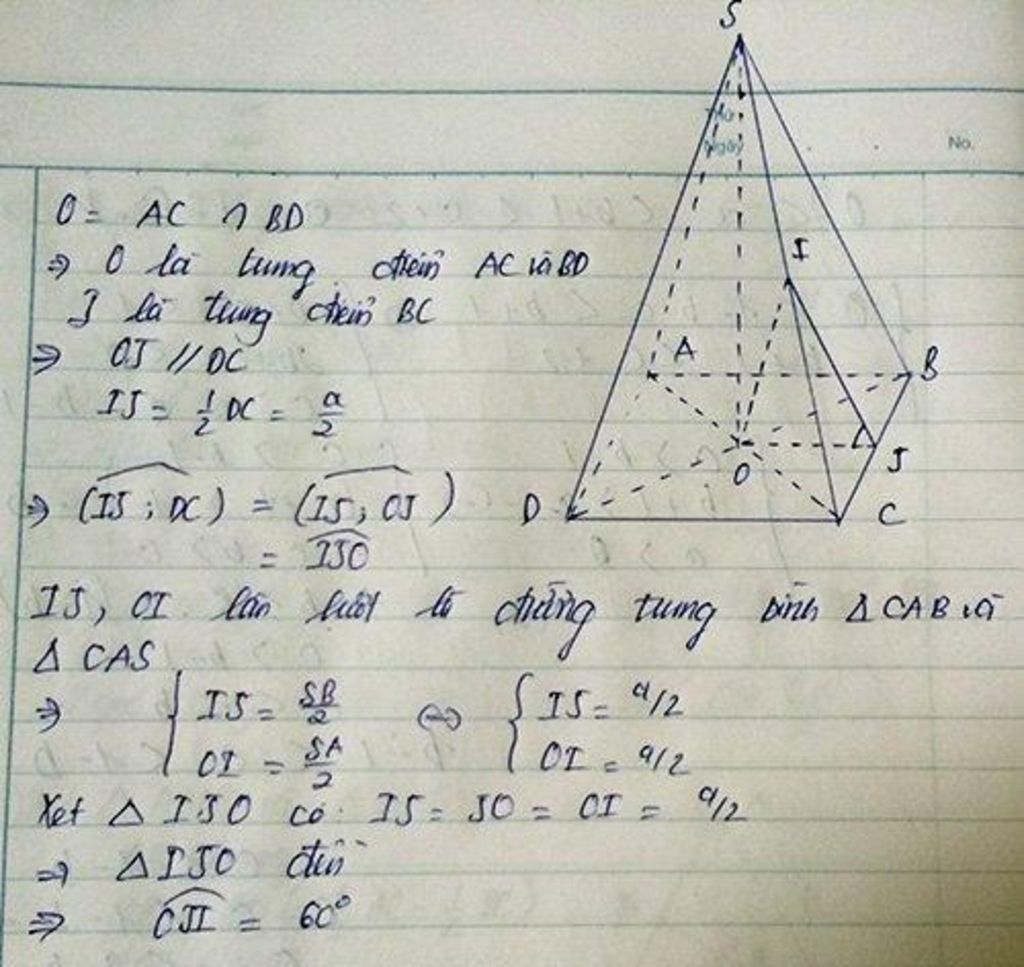 S
Ngày
No.
O = AC ∩ BD
⇒ O là trung điểm AC và BD
J là trung điểm BC
⇒ OJ // DC
IJ = 1/2 DC = a/2
⇒ (IJ; DC) = (IJ, OJ)
= IJO
I
A
B
O
J
D
C
IJ, OI lần lượt là đường trung bình Δ CAB và
Δ CAS
⇒ { IJ = SB/2 ⇔ { IJ = a/2
OI = SA/2 OI = a/2
Xét Δ IJO có: IJ = JO = OI = a/2
⇒ Δ IJO đều
⇒ OJI = 60°